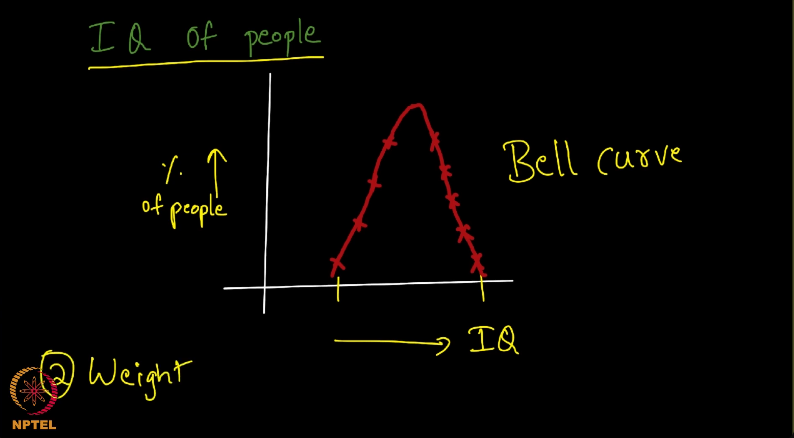 IQ of people
% of people
Bell curve
IQ
② Weight
NPTEL